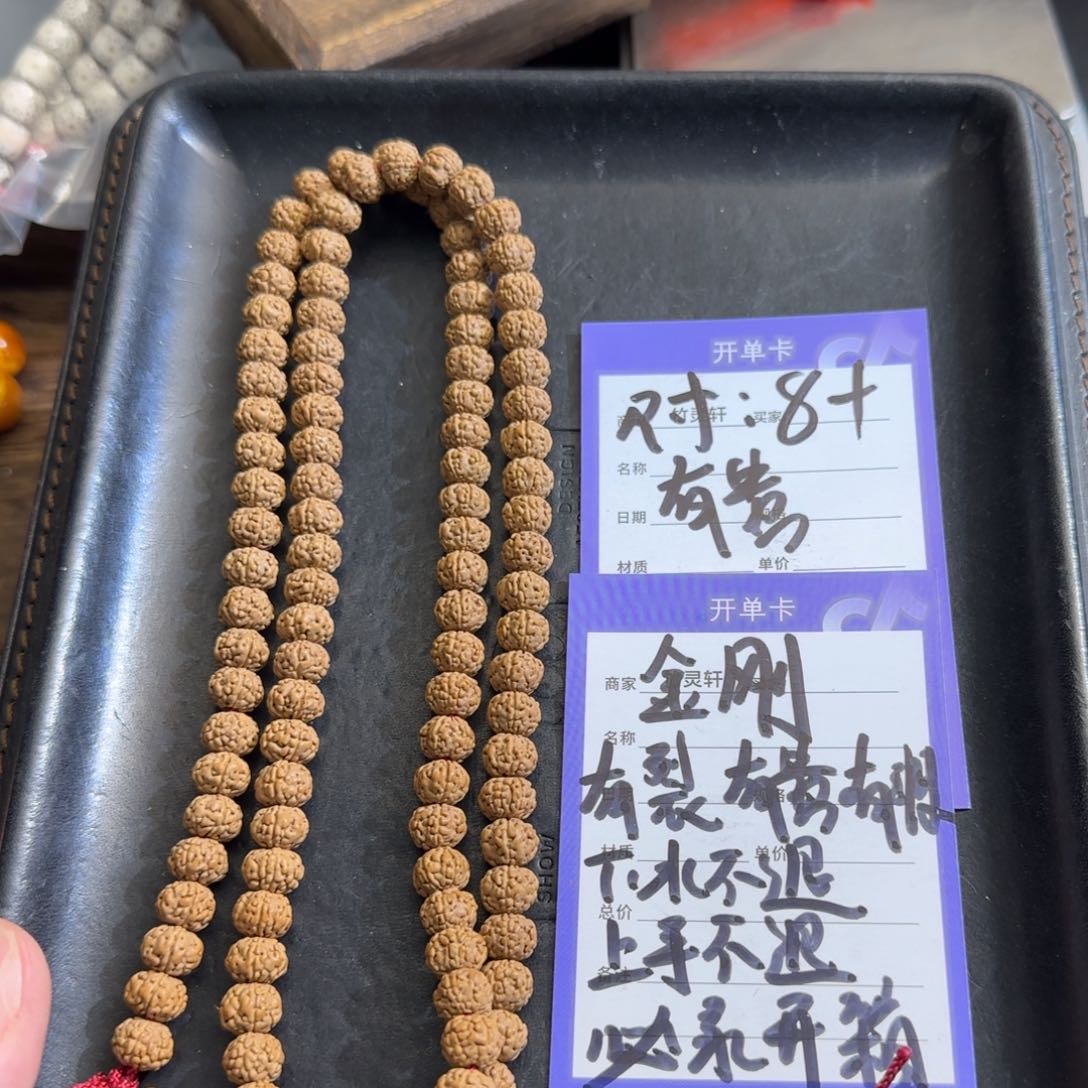 开单卡
对:8十
竹灵轩 买家
名称
有贵
日期
材质 单价
开单卡
金刚
商家 灵轩
名称
有裂 有贵 有瑕
材质 单价
下水不退
总价
上手不退
备注
必录开箱
DESIGN
SHOW